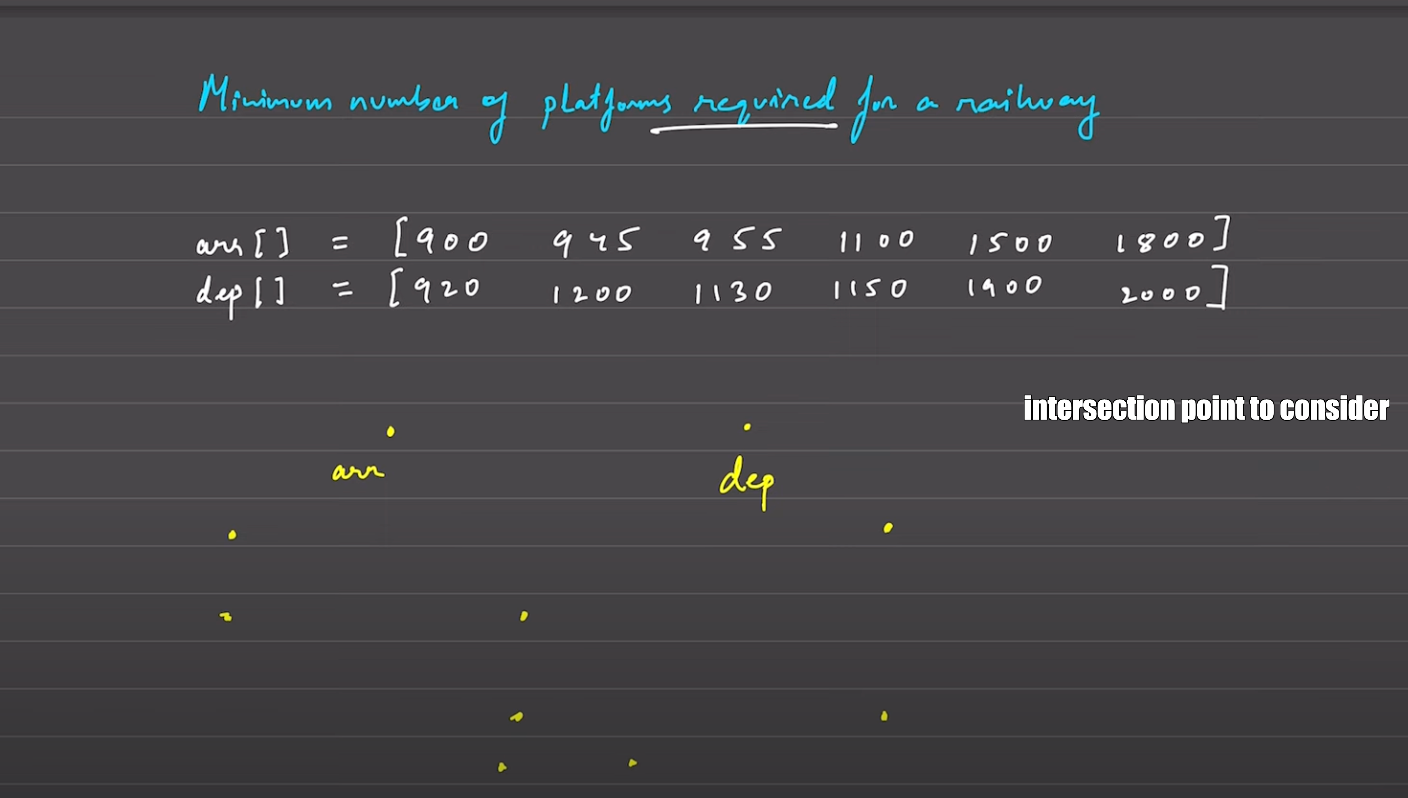 Minimum number of platforms required for a railway
arr[] = [900 945 955 1100 1500 1800]
dep[] = [920 1200 1130 1150 1900 2000]
intersection point to consider
arr dep